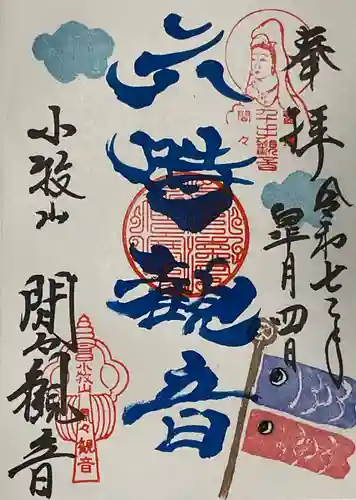 奉拝
令和七年
皐月四日
六時観音
小牧山
間々観音
小牧山
間々観音
間々
千手観音